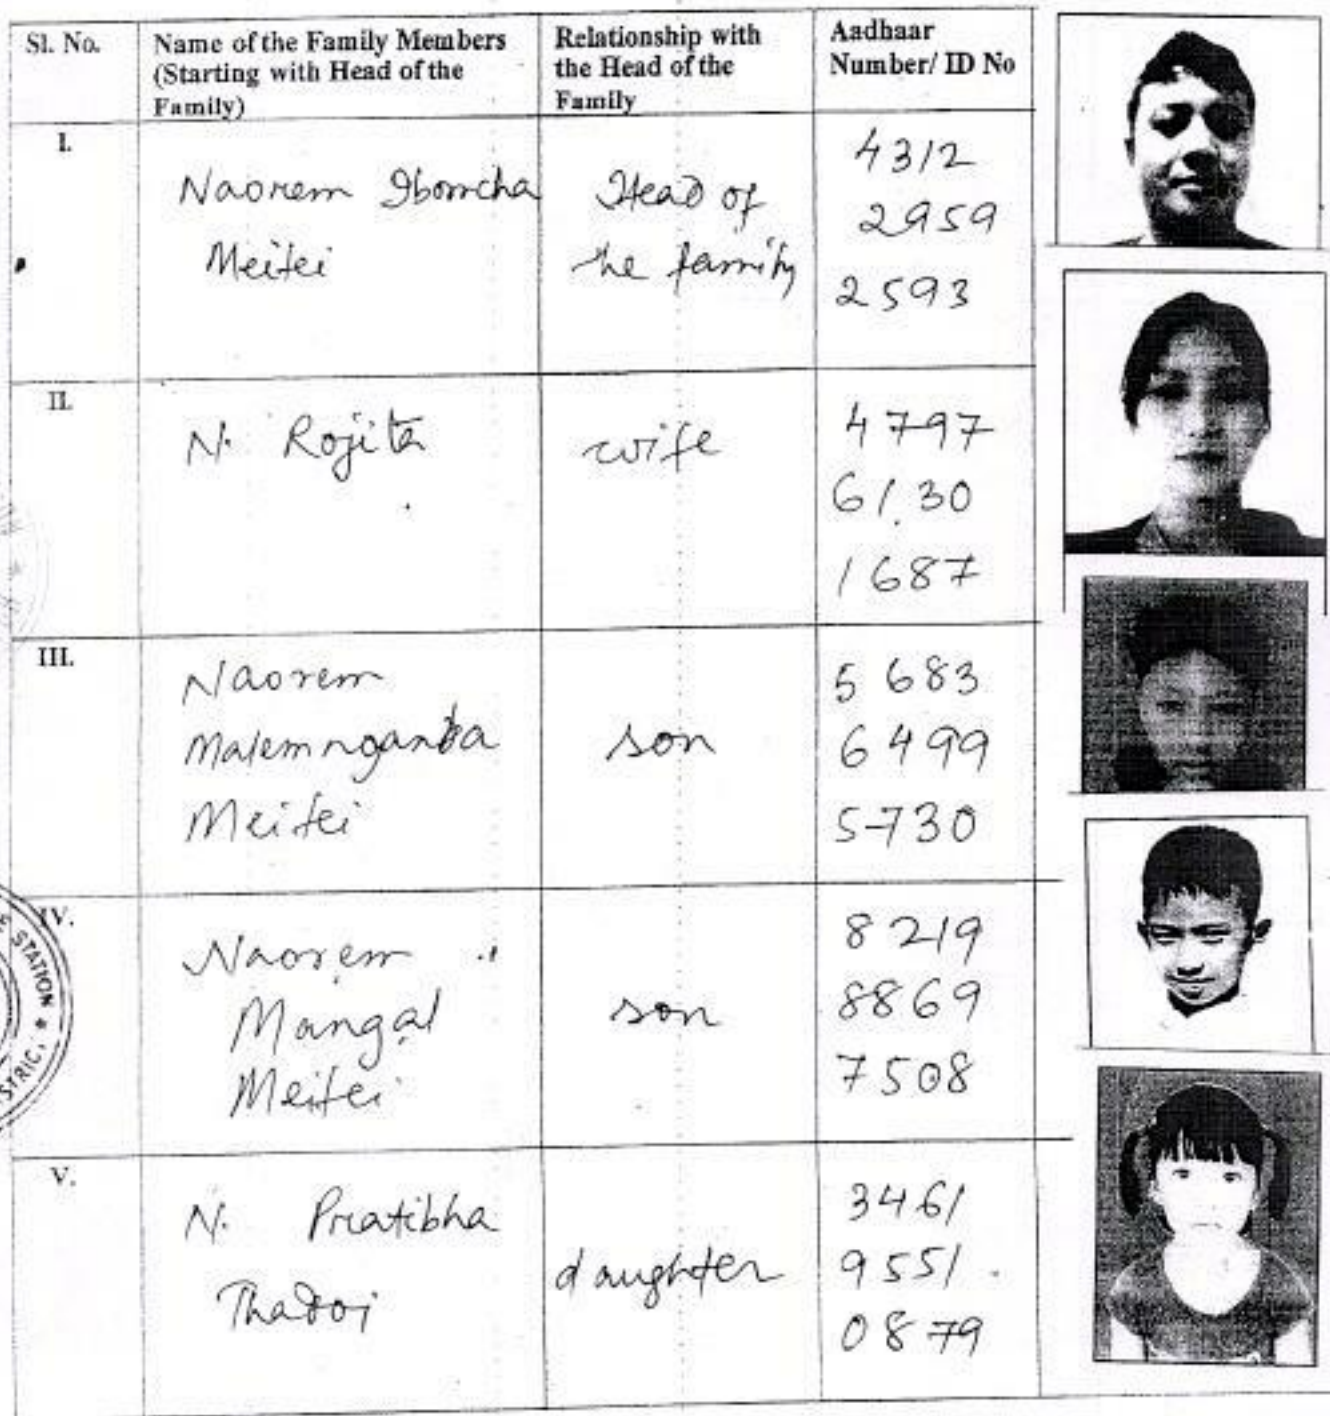 Sl. No.
Name of the Family Members
(Starting with Head of the
Family)
Relationship with
the Head of the
Family
Aadhaar
Number/ ID No
I.
Naorem Ibomcha
Meitei
Head of
the family
4312
2959
2593
II.
N. Rojita
wife
4797
6130
1687
III.
Naorem
Malemnganba
Meitei
son
5 683
6499
5730
IV.
Naorem
Mangal
Meitei
son
8219
8869
7508
STATION
V.
N. Pratibha
Thadoi
daughter
3461
9551
0879